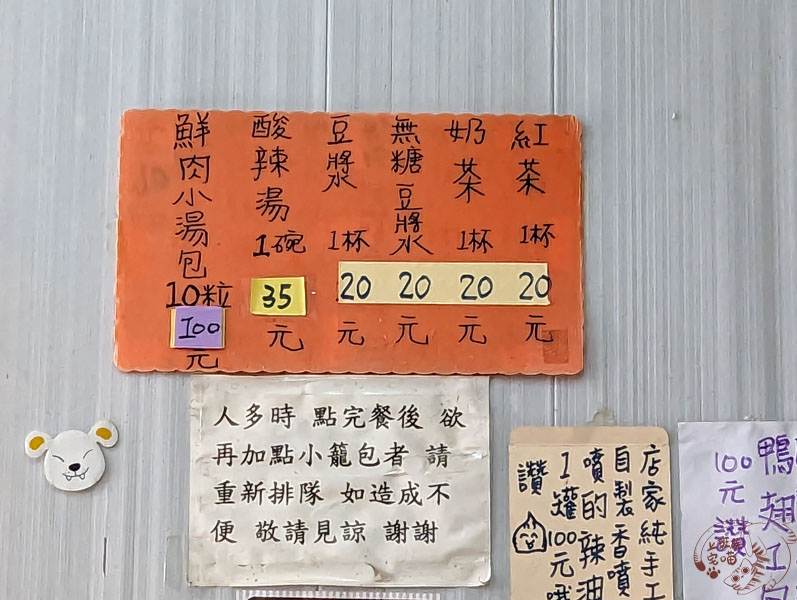 紅茶 1杯 20元
奶茶 1杯 20元
無糖豆漿 20元
豆漿 1杯 20元
酸辣湯 1碗 35元
鮮肉小湯包 10粒 100元
人多時 點完餐後 欲
再加點小籠包者 請
重新排隊 如造成不
便 敬請見諒 謝謝
店家純手工
自製香噴
噴的辣油
1罐100元哦
讚
鴨翅1
100元讚